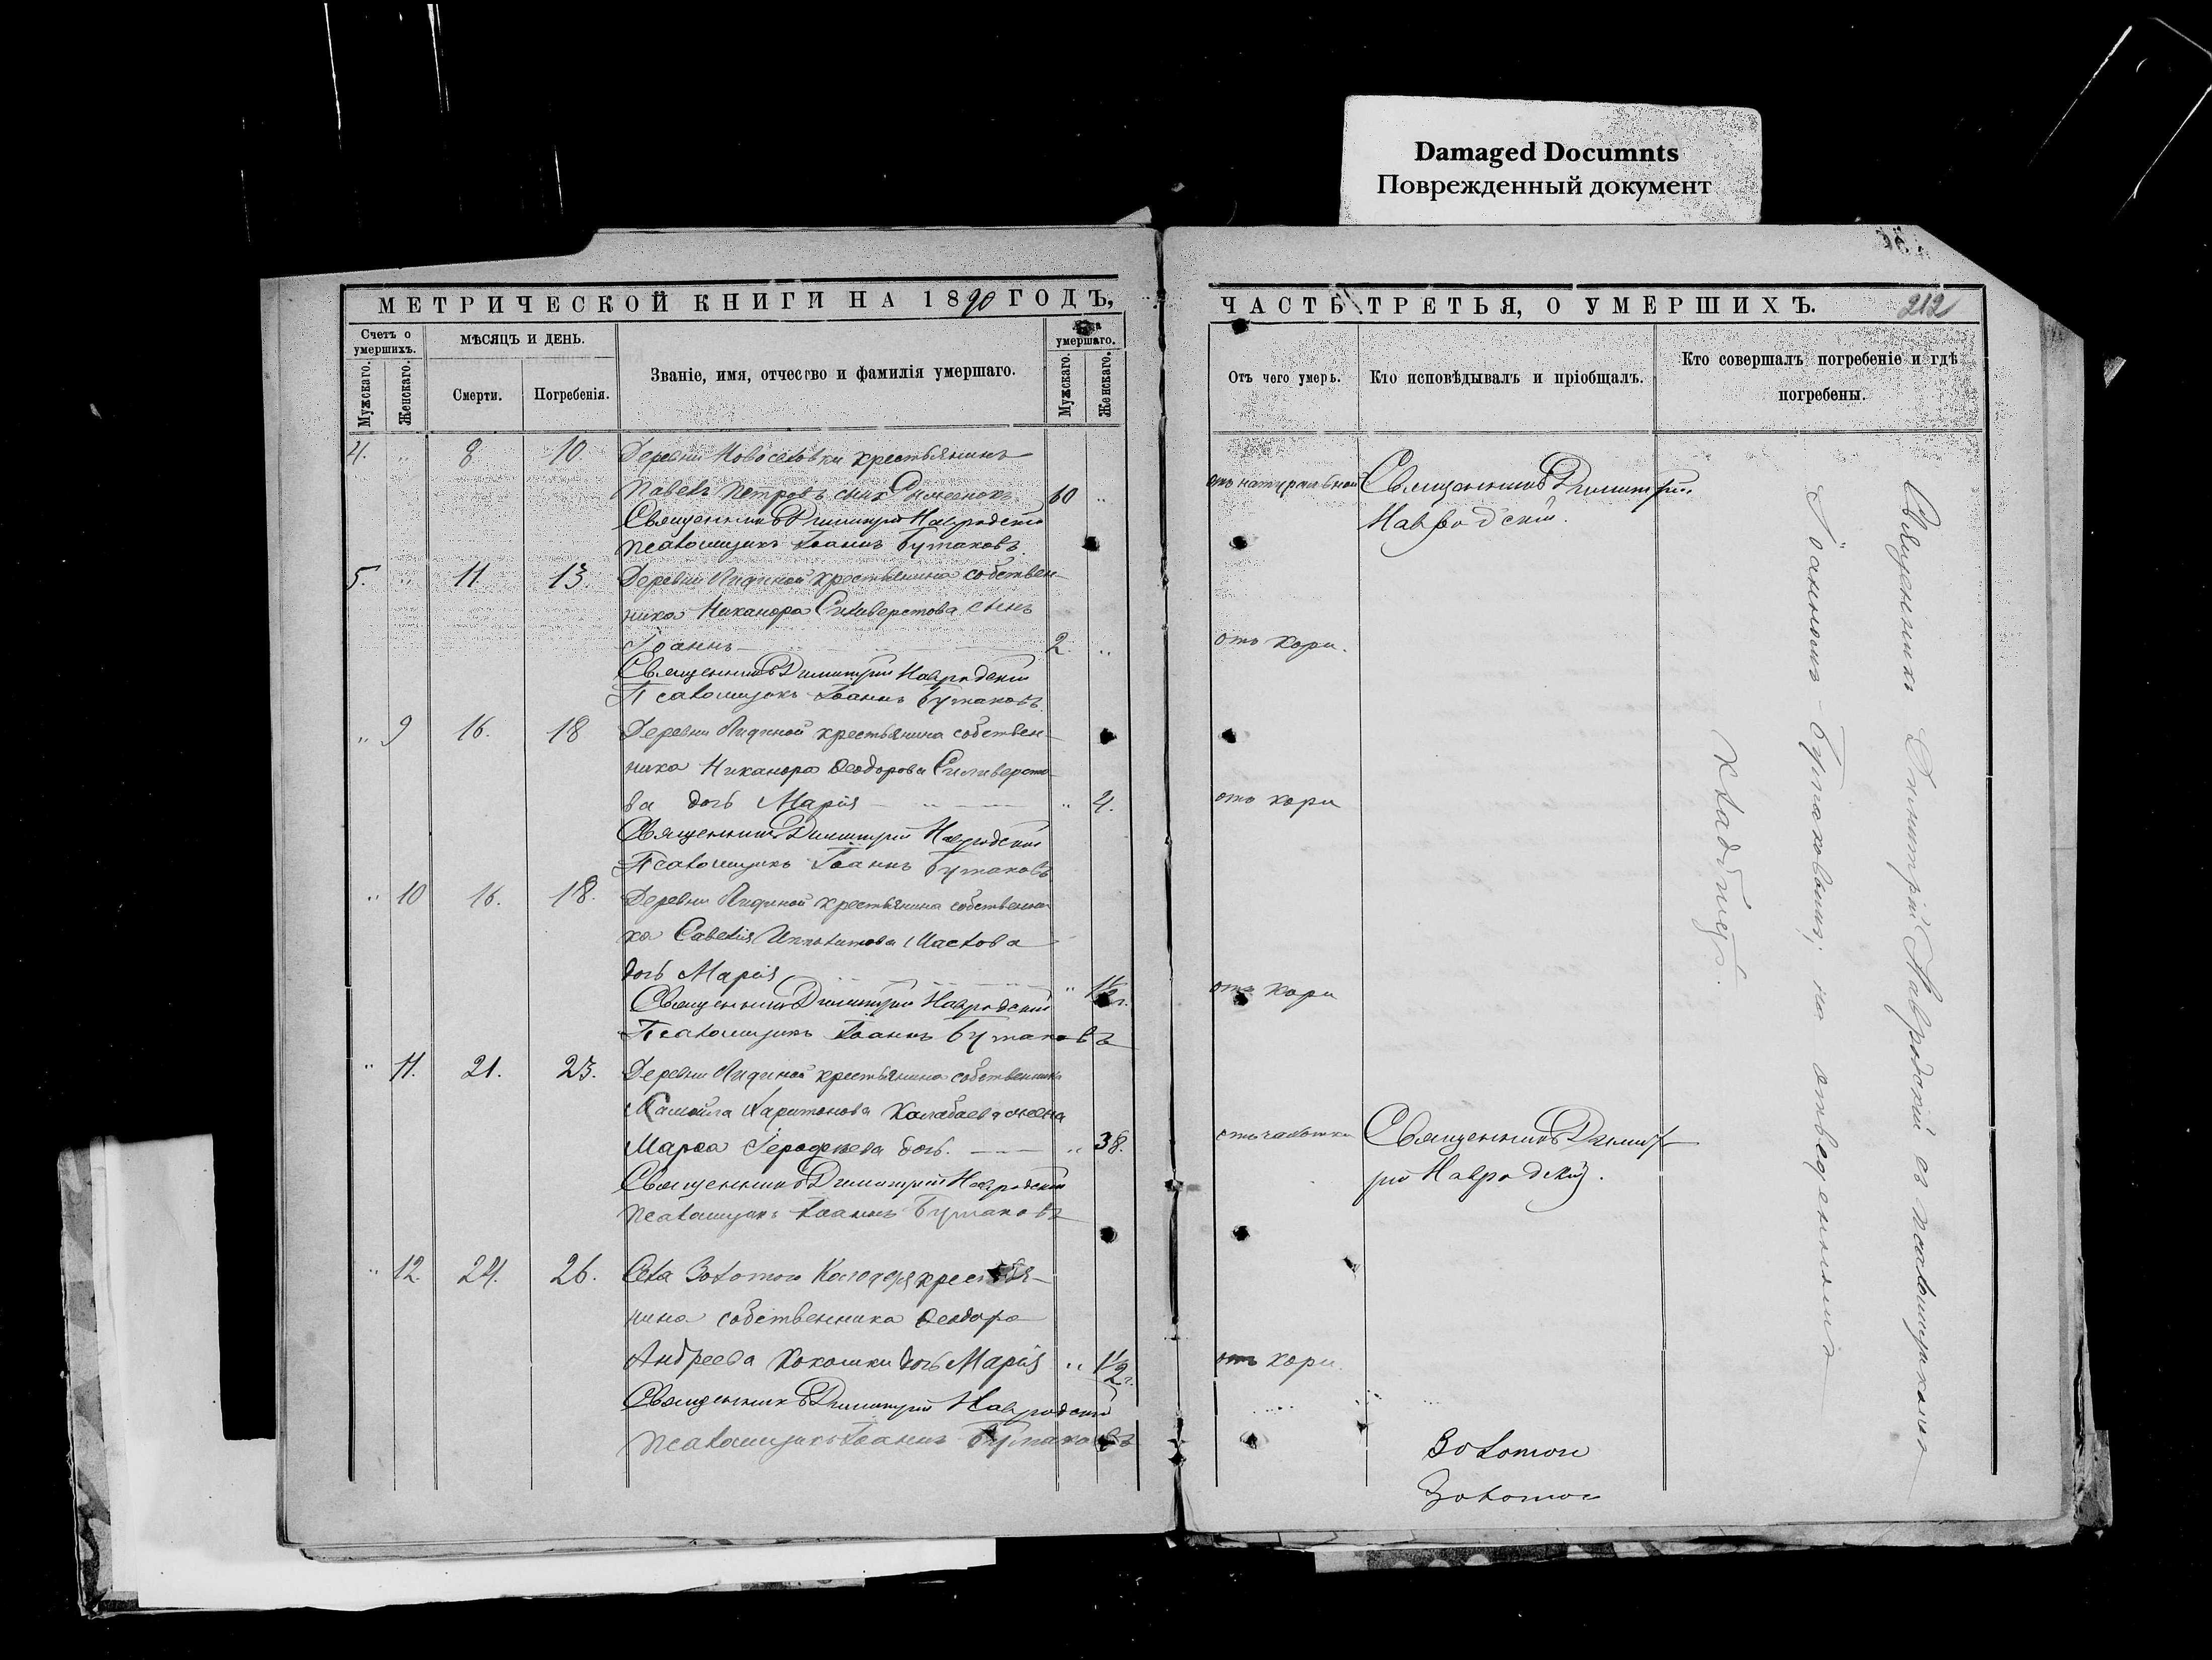 Damaged Documnts
Поврежденный документ
МЕТРИЧЕСКОЙ КНИГИ НА 1890 ГОДЪ,
Счетъ о умершихъ.
МѢСЯЦЪ И ДЕНЬ.
Званіе, имя, отчество и фамилія умершаго.
умершаго.
Мужскаго.
Женскаго.
Смерти.
Погребенія.
Мужскаго.
Женскаго.
4. " 8 10 Деревни Новоселовки крестьянинъ
Павелъ Петровъ сынъ 60 "
Священникъ Димитрій Навродскій
Псаломщикъ Іоаннъ Бутаковъ.
5. " 11. 13. Деревни крестьянина собствен-
ника Никанора Силиверстова сынъ
Іоаннъ 2. "
Священникъ Димитрій Навродскій
Псаломщикъ Іоаннъ Бутаковъ.
" 9 16. 18 Деревни крестьянина собствен-
ника Никанора Ѳеодорова Силиверсто-
ва дочь Марія " 4.
Священникъ Димитрій Навродскій
Псаломщикъ Іоаннъ Бутаковъ
" 10 16. 18. Деревни крестьянина собственни-
ка Савелія Ипполитова Маслова
дочь Марія " 1½ г.
Священникъ Димитрій Навродскій
Псаломщикъ Іоаннъ Бутаковъ
" 11. 21. 23. Деревни крестьянина собственника
Самойла Харитонова жена
Марѳа дочь. " 38.
Священникъ Димитрій Навродскій
Псаломщикъ Іоаннъ Бутаковъ
" 12. 24. 26. Села Золотого Колодезя крестья-
нина собственника Ѳеодора
Андреева Кокошки дочь Марія " 1½ г.
Священникъ Димитрій Навродскій
Псаломщикъ Іоаннъ Бутаковъ
ЧАСТЬ ТРЕТЬЯ, О УМЕРШИХЪ.
212
Отъ чего умеръ.
Кто исповѣдывалъ и пріобщалъ.
Кто совершалъ погребеніе и гдѣ
погребены.
отъ натуральной
Священникъ Димитрій
Навродскій.
отъ кори.
отъ кори
отъ кори
отъ чахотки
Священникъ Димит-
рій Навродскій.
отъ кори.
Священникъ Димитрій Навродскій съ псаломщикомъ
Іоанномъ Бутаковымъ, на отведенномъ
кладбищѣ.
Золотои
Золотои